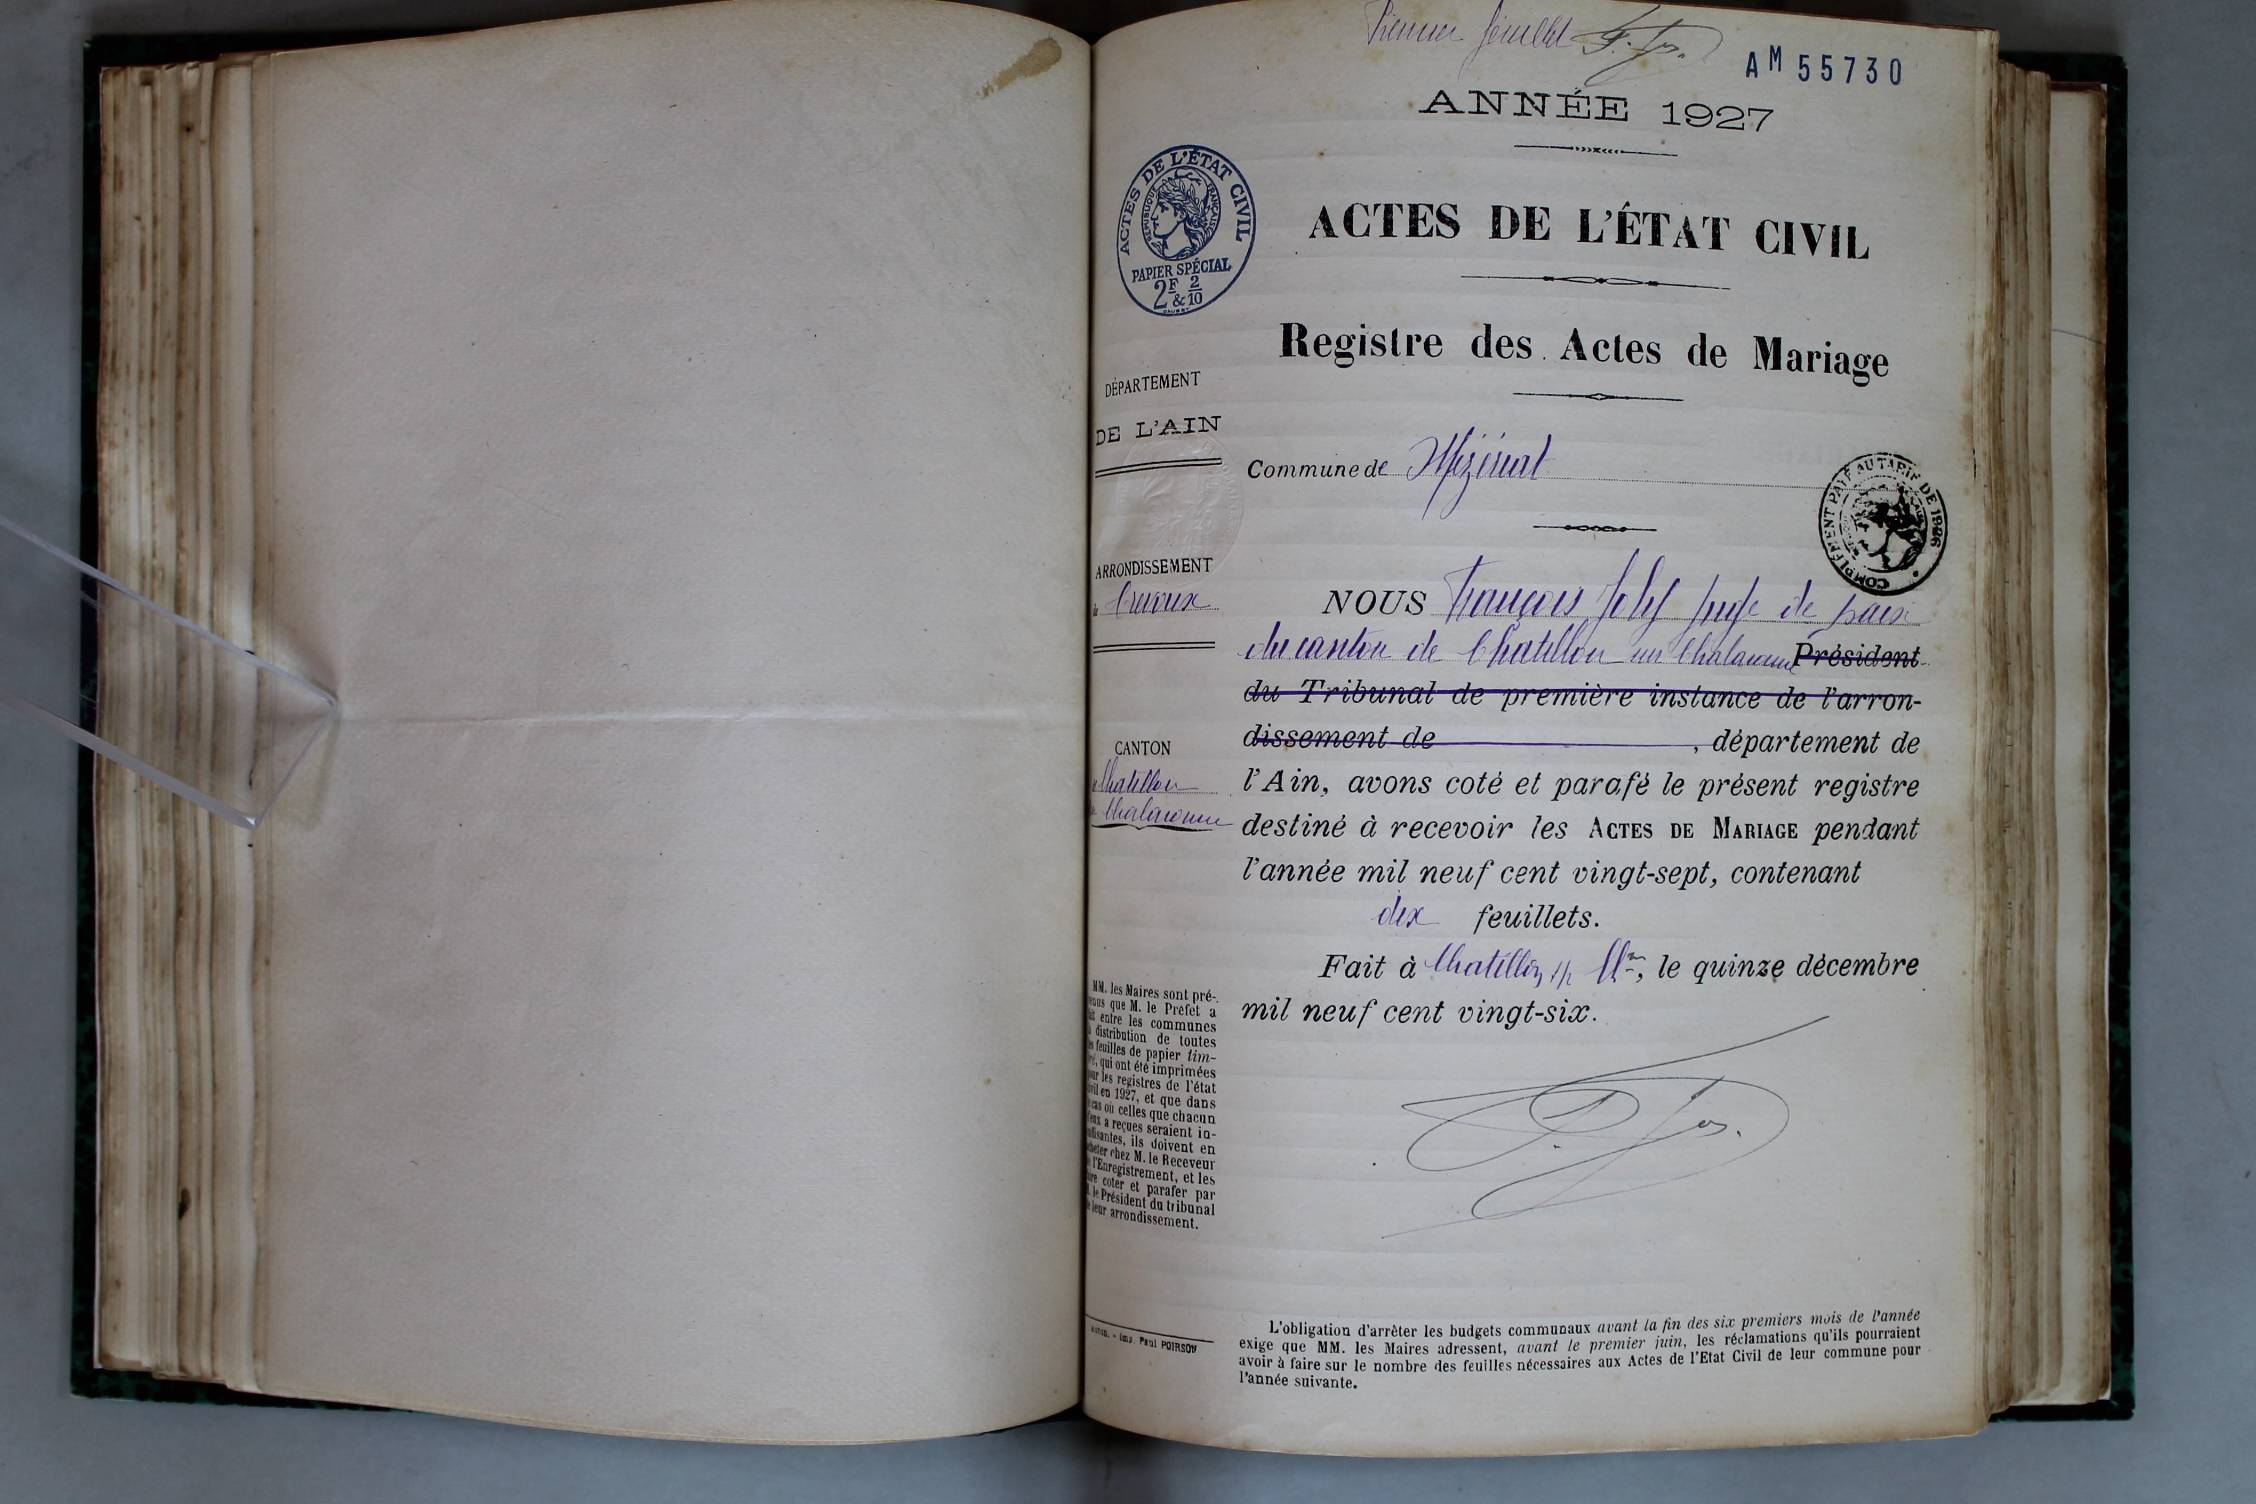 Premier feuillet F. Jos.
AM 55730
ANNÉE 1927
ACTES DE L'ÉTAT CIVIL
RÉPUBLIQUE FRANÇAISE
PAPIER SPÉCIAL
2F & 2/10
ACTES DE L'ÉTAT CIVIL
Registre des Actes de Mariage
DÉPARTEMENT
DE L'AIN
Commune de Mézériat
COMPLÉMENT PAYÉ AU TARIF DE 1926
ARRONDISSEMENT
de Trévoux
CANTON
de Chatillon
Chalaronne
NOUS François Joly Juge de paix
du canton de Chatillon sur Chalaronne Président
du Tribunal de première instance de l'arron-
dissement de , département de
l'Ain, avons coté et parafé le présent registre
destiné à recevoir les ACTES DE MARIAGE pendant
l'année mil neuf cent vingt-sept, contenant
dix feuillets.
Fait à Chatillon s/ Ch^ne, le quinze décembre
mil neuf cent vingt-six.
MM. les Maires sont pré-
venus que M. le Préfet a
fait entre les communes
la distribution de toutes
les feuilles de papier tim-
bré, qui ont été imprimées
pour les registres de l'état
civil en 1927, et que dans
le cas où celles que chacun
d'eux a reçues seraient in-
suffisantes, ils doivent en
acheter chez M. le Receveur
de l'Enregistrement, et les
faire coter et parafer par
M. le Président du tribunal
de leur arrondissement.
Imp. Paul POIRSON
L'obligation d'arrêter les budgets communaux avant la fin des six premiers mois de l'année
exige que MM. les Maires adressent, avant le premier juin, les réclamations qu'ils pourraient
avoir à faire sur le nombre des feuilles nécessaires aux Actes de l'Etat Civil de leur commune pour
l'année suivante.